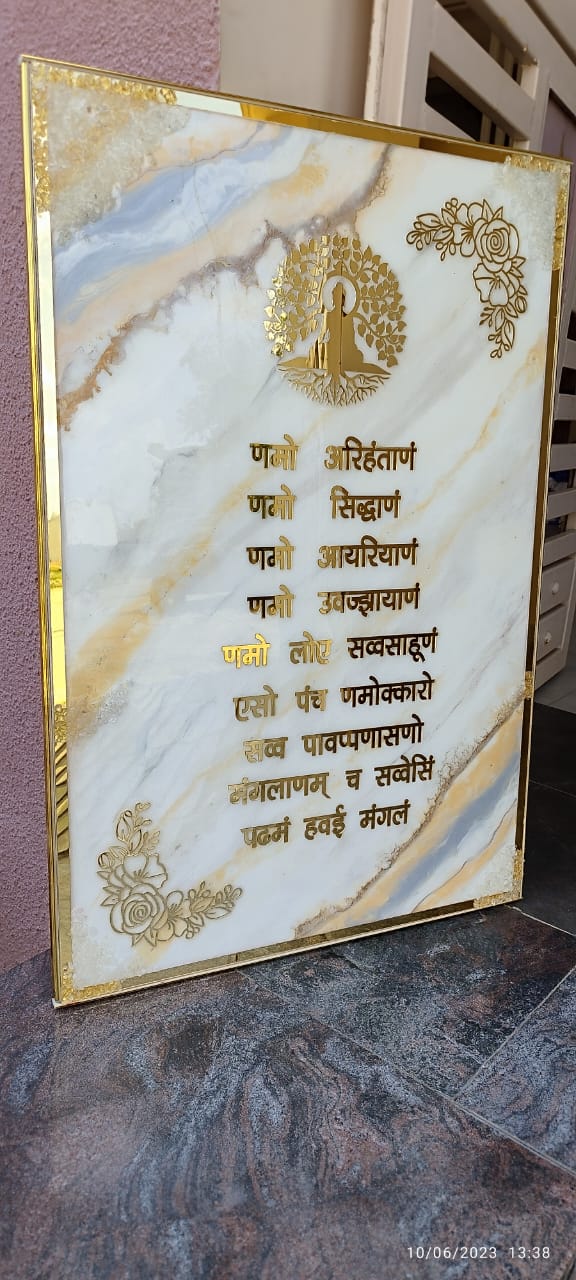 णमो अरिहंताणं
णमो सिद्धाणं
णमो आयरियाणं
णमो उवज्झायाणं
णमो लोए सव्वसाहूणं
एसो पंच णमोक्कारो
सव्व पावप्पणासणो
मंगलाणम् च सव्वेसिं
पढमं हवई मंगलं
10/06/2023 13:38